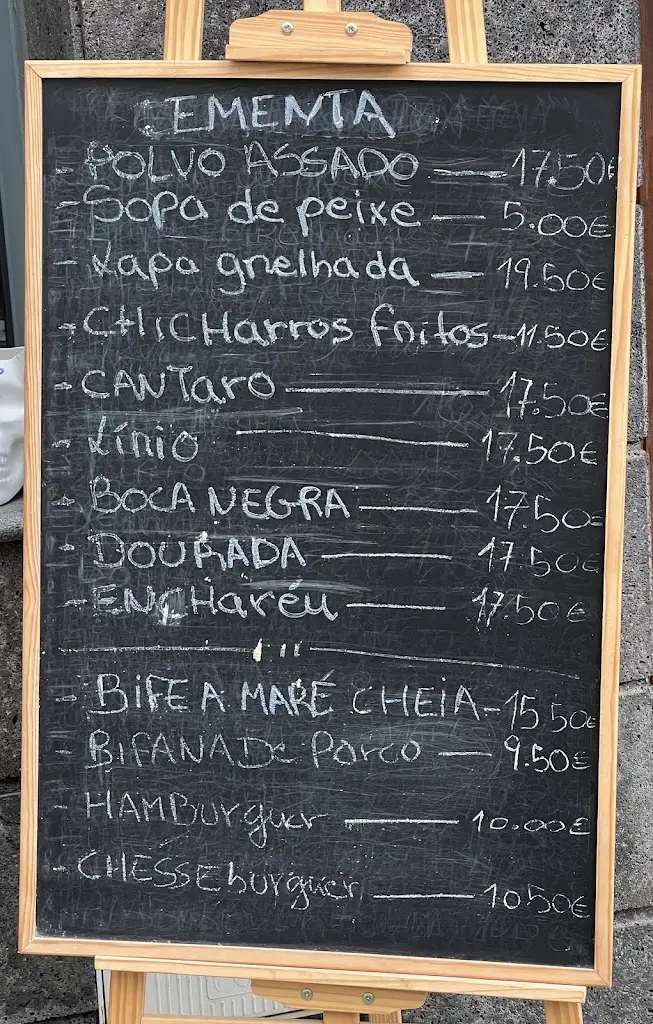 EMENTA
- POLVO ASSADO — 17.50€
- Sopa de peixe — 5.00€
- Lapa grelhada — 19.50€
- CHICHarros fritos - 11.50€
- CANTarO — 17.50€
- Línio — 17.50€
- BOCA NEGRA — 17.50€
- DOURADA — 17.50€
- ENCHaréu — 17.50€
- BIFE A MARÉ CHEIA - 15.50€
- BIFANA De Porco — 9.50€
- HAMBurguer — 10.00€
- CHESSEburguer — 10.50€